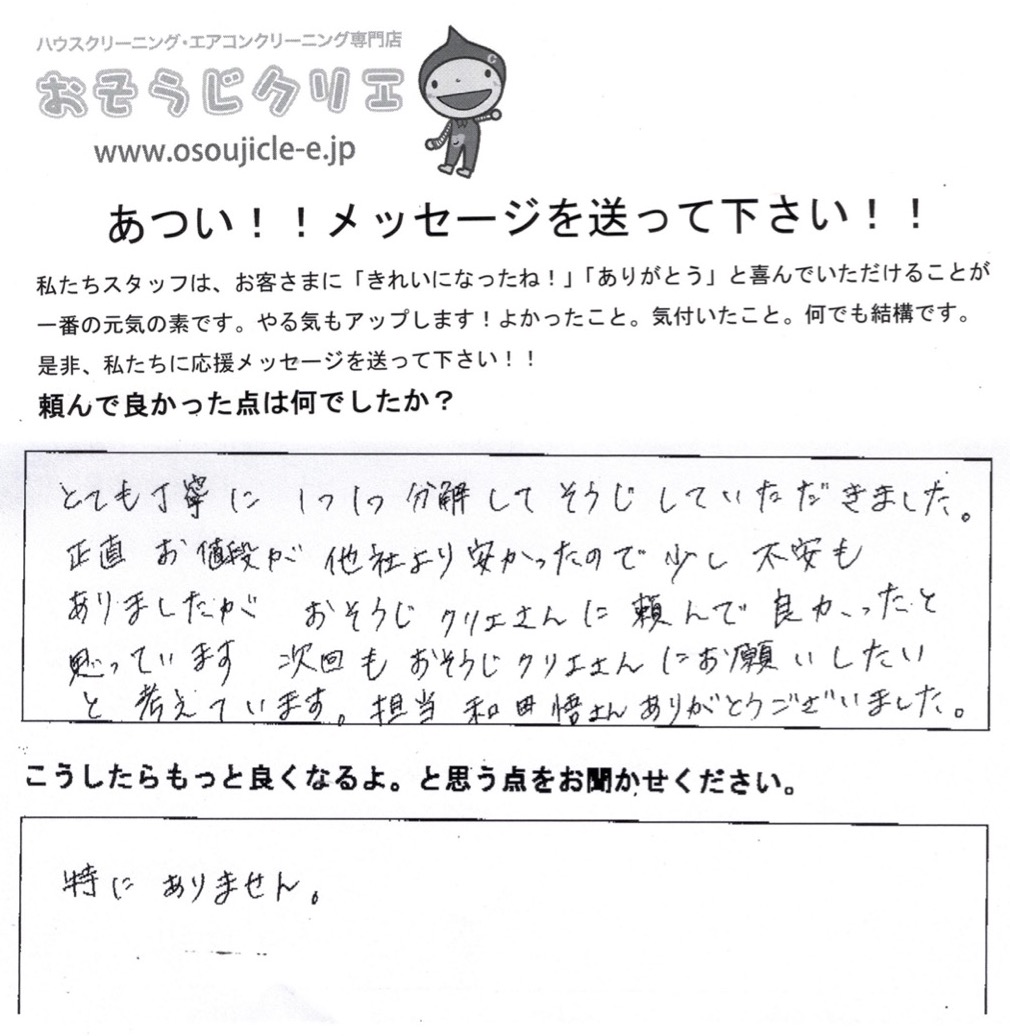 ハウスクリーニング・エアコンクリーニング専門店
おそうじクリエ
www.osoujicle-e.jp
あつい！！メッセージを送って下さい！！
私たちスタッフは、お客さまに「きれいになったね！」「ありがとう」と喜んでいただけることが
一番の元気の素です。やる気もアップします！よかったこと。気付いたこと。何でも結構です。
是非、私たちに応援メッセージを送って下さい！！
頼んで良かった点は何でしたか？
とても丁寧に 1つ1つ 分解して そうじ していただきました。
正直 お値段が 他社より安かったので 少し 不安も
ありましたが おそうじ クリエさんに 頼んで 良かったと
思っています 次回も おそうじクリエさんにお願いしたい
と 考えています。担当 和田悟さん ありがとうございました。
こうしたらもっと良くなるよ。と思う点をお聞かせください。
特に ありません。